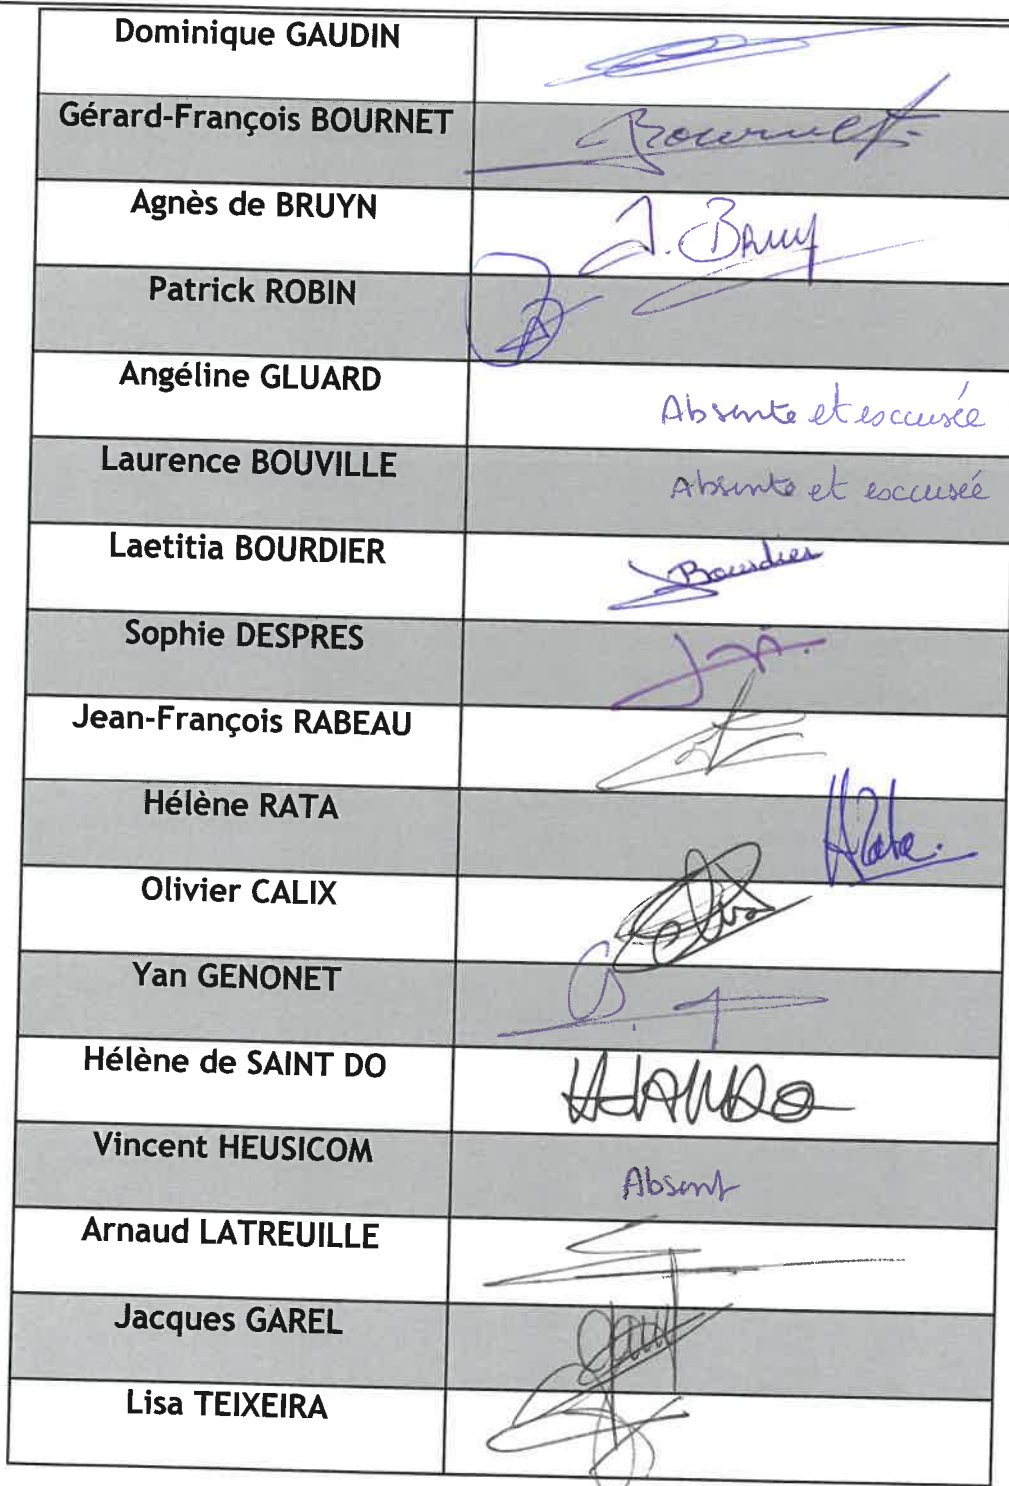 Dominique GAUDIN
Gérard-François BOURNET
Bournet
Agnès de BRUYN
Patrick ROBIN
Angéline GLUARD
Absente et excusée
Laurence BOUVILLE
Absente et excusée
Laetitia BOURDIER
Bourdier
Sophie DESPRES
Jean-François RABEAU
Hélène RATA
HRata.
Olivier CALIX
Yan GENONET
Hélène de SAINT DO
Vincent HEUSICOM
Absent
Arnaud LATREUILLE
Jacques GAREL
Lisa TEIXEIRA